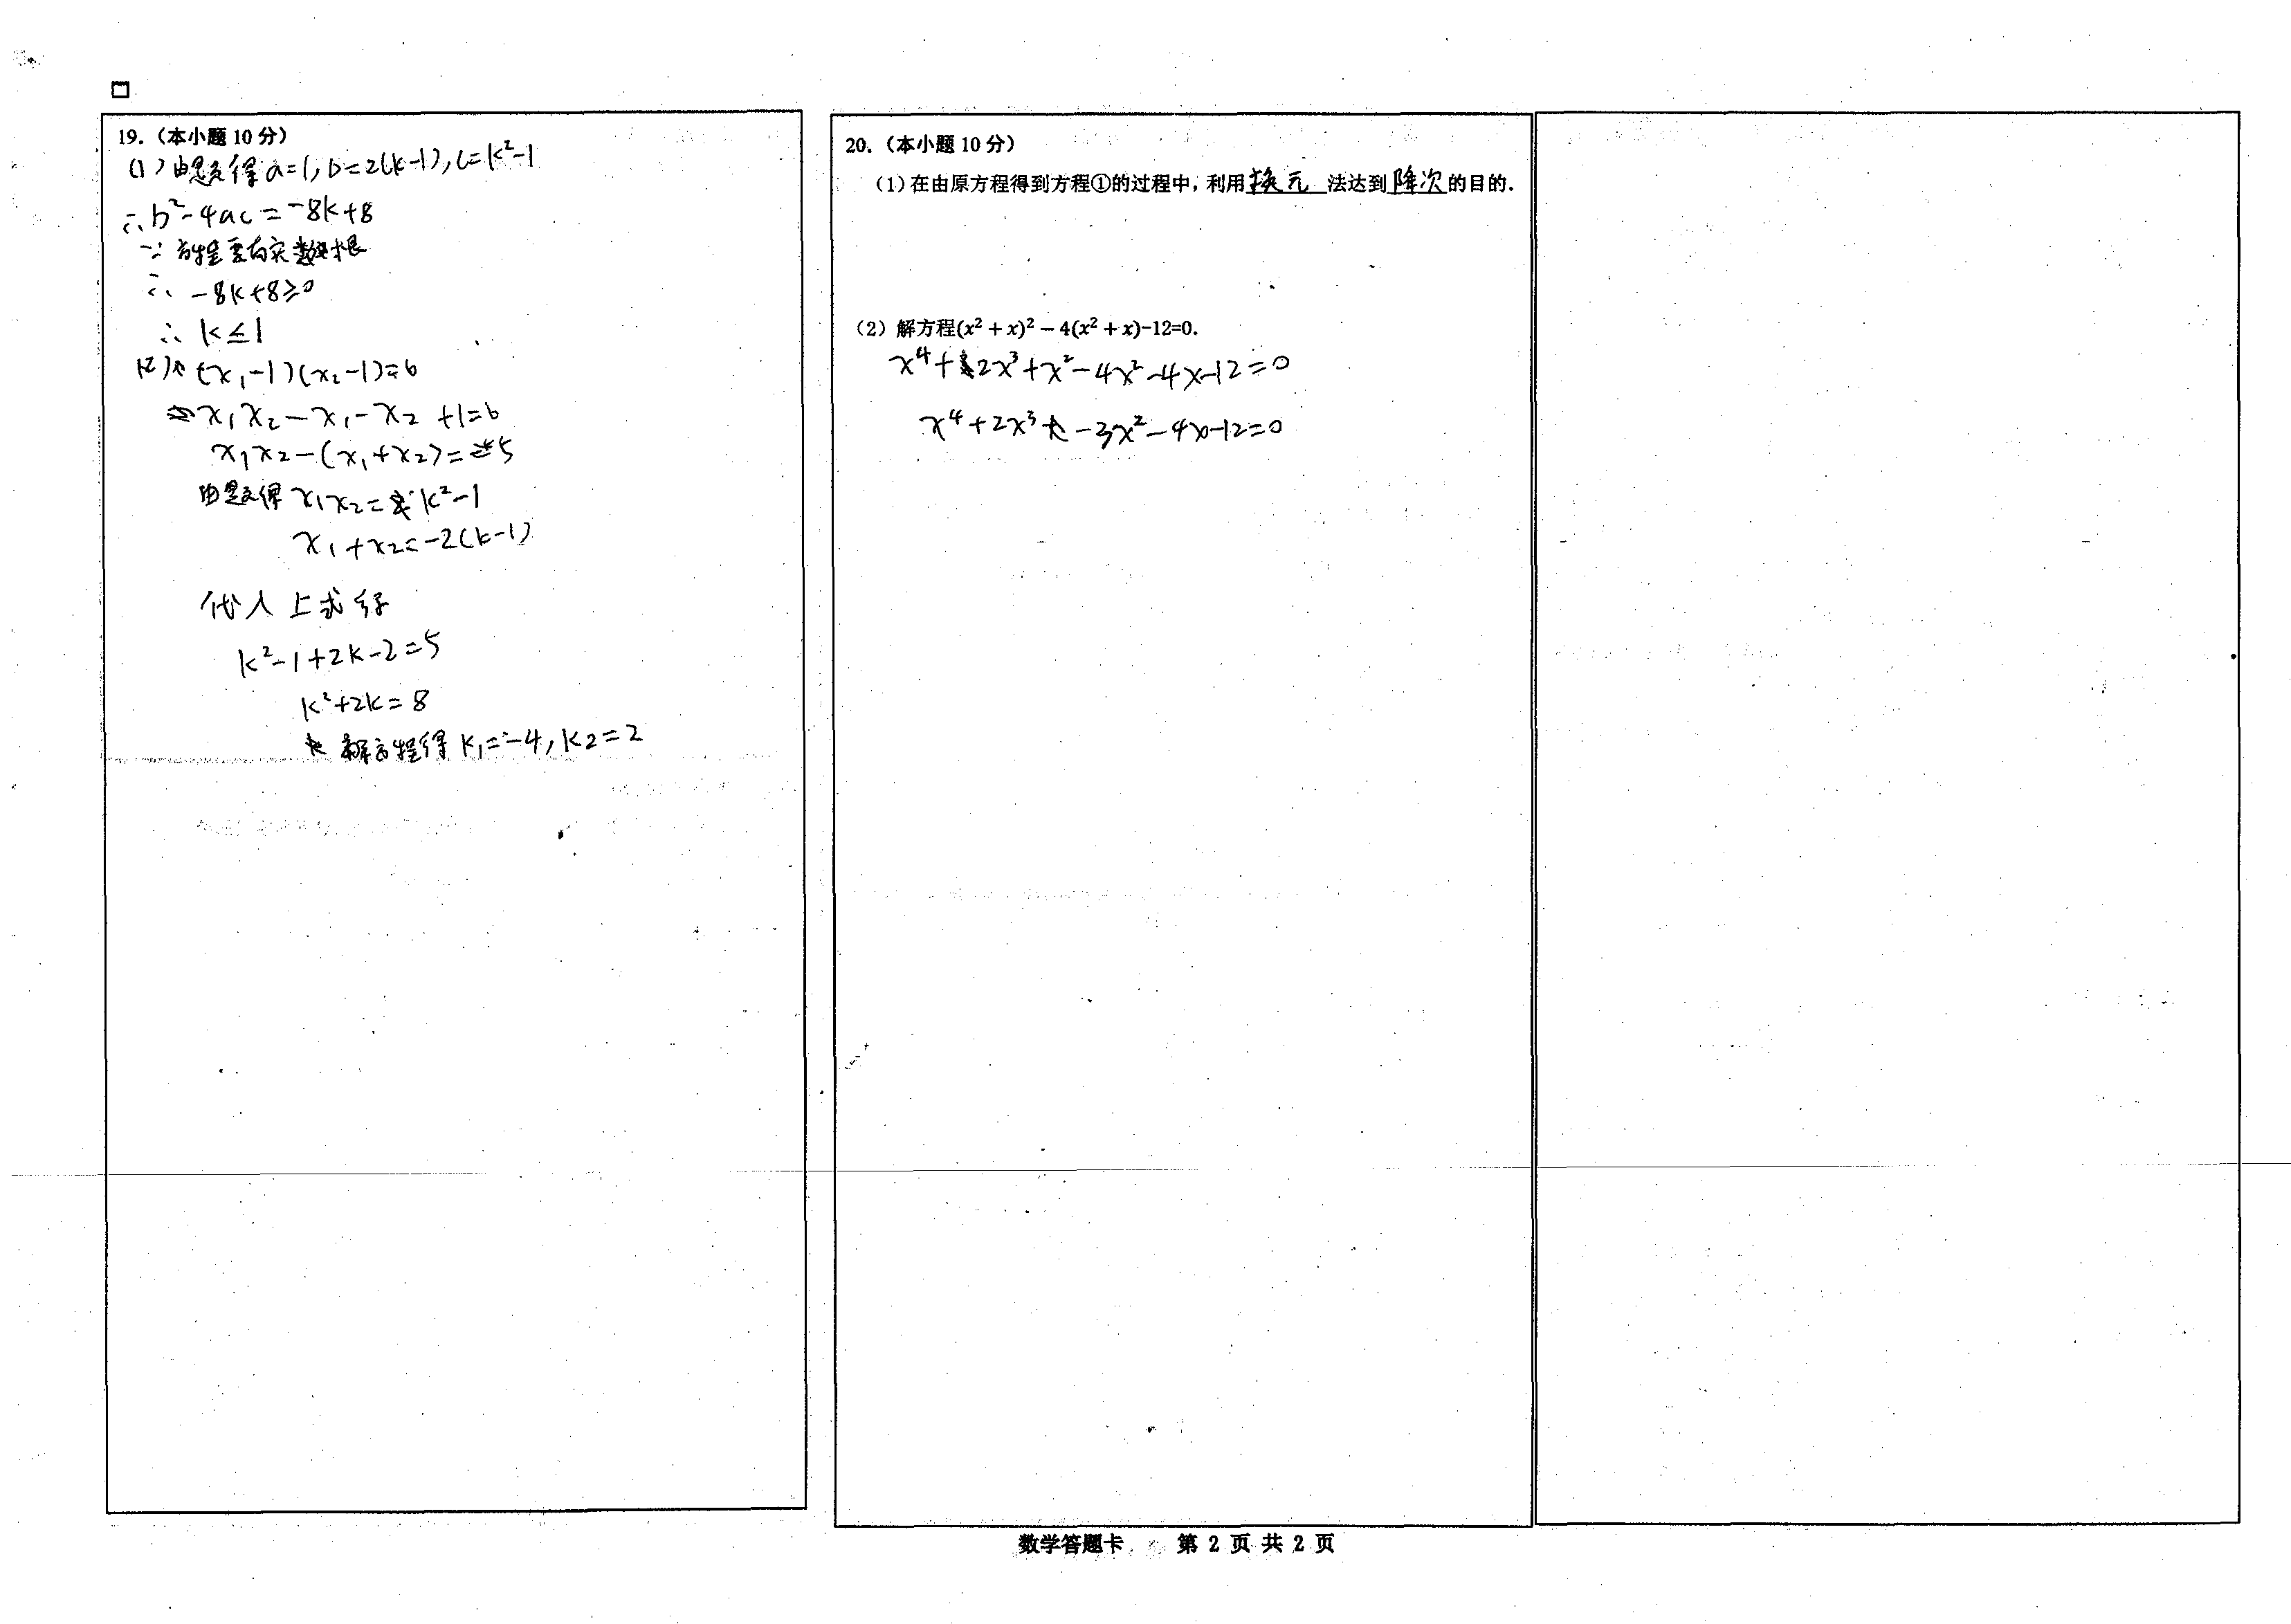 19.（本小题 10 分）
(1) 由题意得 a=1, b=2(k-1), c=k²-1
∴ b²-4ac=-8k+8
∵ 方程要有实数根
∴ -8k+8≥0
∴ k≤1
(2) (x₁-1)(x₂-1)=6
x₁x₂-x₁-x₂+1=6
x₁x₂-(x₁+x₂)=5
由题意得 x₁x₂=k²-1
x₁+x₂=-2(k-1)
代入上式得
k²-1+2k-2=5
k²+2k=8
解方程得 k₁=-4, k₂=2
20.（本小题 10 分）
（1）在由原方程得到方程①的过程中，利用换元法达到降次的目的.
（2）解方程(x²+x)²-4(x²+x)-12=0.
x⁴+2x³+x²-4x²-4x-12=0
x⁴+2x³-3x²-4x-12=0
数学答题卡 第 2 页 共 2 页